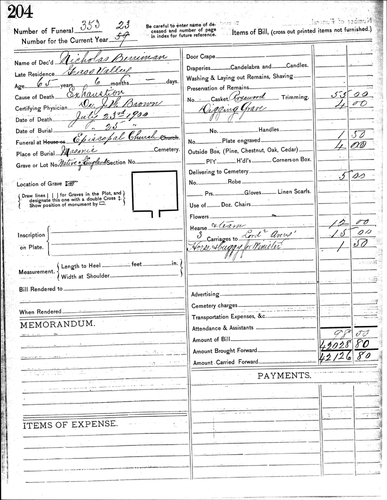 204
Number of Funeral 353 23
Number for the Current Year 54
Be carefull to enter name of deceased and number of page in index for future reference.
Name of Dec'd Nicholas Berriman
Late Residence Grass Valley
Age 65 years 6 months - days.
Cause of Death Exhaustion
Certifying Physician Dr. Jno Brown
Date of Death July 23rd 1900
Date of Burial " 25 "
Funeral at House Episcopal Church Church.
Place of Burial Masonic Cemetery.
Grave or Lot No. Native of England Section No.
Location of Grave
Draw lines | | for Graves in the Plot, and designate this one with a double Cross. Show position of monument by □
Inscription on Plate.
Measurement. Length to Heel feet in.
Width at Shoulder
Bill Rendered to
When Rendered
MEMORANDUM.
ITEMS OF EXPENSE.
Items of Bill, (cross out printed items not furnished.)
Door Crape
Draperies Candelabra and Candles.
Washing & Laying out Remains, Shaving
Preservation of Remains
No. Casket Rosewood Trimming. 55 00
Digging Grave 4 00
No. Handles
Plate engraved 1 50
Outside Box, (Pine, Chestnut, Oak, Cedar) 4 00
PIY H'd'l's Cornerson Box.
Delivering to Cemetery 5 00
No. Robe
Prs. Gloves Linen Scarfs.
Use of Doz. Chairs
Flowers
Hearse & team 12 00
3 Carriages to 15 00
Horse & buggy for Minister 1 50
Advertising
Cemetery charges
Transportation Expenses, &c
Attendance & Assistants
Amount of Bill 98 00
Amount Brought Forward 42028 80
Amount Carried Forward 42126 80
PAYMENTS.